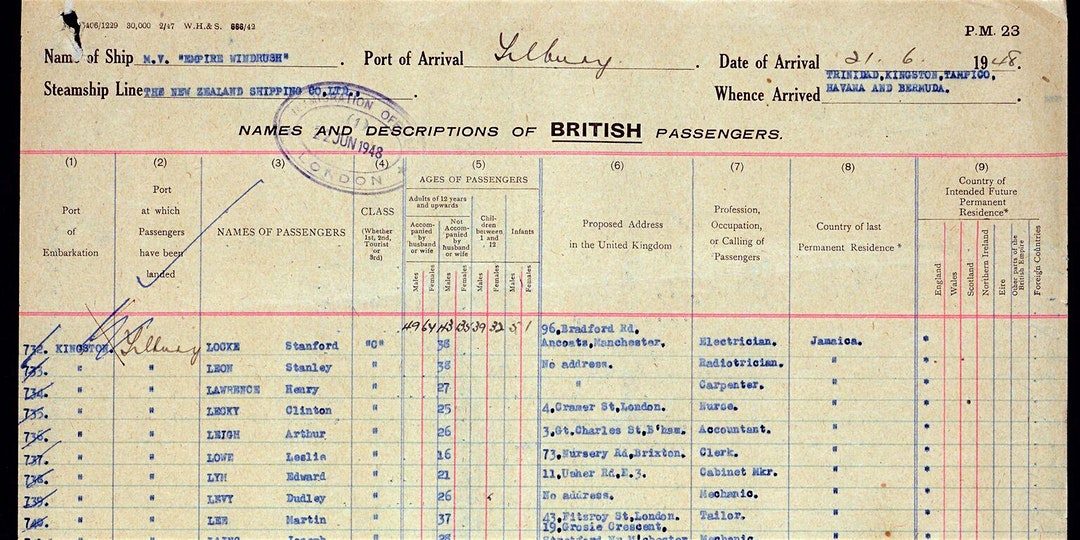 5406/1229 30,000 2/47 W.H.& S. 666/43
P.M. 23
Name of Ship M.V. "EMPIRE WINDRUSH" . Port of Arrival Tilbury . Date of Arrival 21. 6. 1948.
Steamship Line THE NEW ZEALAND SHIPPING CO.LTD., . Whence Arrived TRINIDAD, KINGSTON, TAMPICO,
HAVANA AND BERMUDA.
IMMIGRATION OFFICER
(1)
22 JUN 1948
LONDON
NAMES AND DESCRIPTIONS OF BRITISH PASSENGERS.
(1) (2) (3) (4) (5) (6) (7) (8) (9)
Port
of
Embarkation
Port
at which
Passengers
have been
landed
NAMES OF PASSENGERS
CLASS
(Whether
1st, 2nd,
Tourist
or
3rd)
AGES OF PASSENGERS
Adults of 12 years
and upwards
Accom-
panied by
husband
or wife
Not
Accom-
panied by
husband
or wife
Chil-
dren
between
1 and
12
Infants
Males Females Males Females Males Females Males Females
Proposed Address
in the United Kingdom
Profession,
Occupation,
or Calling of
Passengers
Country of last
Permanent Residence *
Country of
Intended Future
Permanent
Residence*
England
Wales
Scotland
Northern Ireland
Eire
Other parts of the
British Empire
Foreign Countries
49 64 39 32 5 1
96, Bradford Rd,
732. KINGSTON. Tilbury LOCKE Stanford "C" 38 Ancoats, Manchester. Electrician. Jamaica. *
733. " " LEON Stanley " 38 No address. Radiotrician. " *
734. " " LAWRENCE Henry " 27 " Carpenter. " *
735. " " LECKY Clinton " 25 4, Cramer St, London. Nurse. " *
736. " " LEIGH Arthur " 26 3, Gt. Charles St, B'ham. Accountant. " *
737. " " LOWE Leslie " 16 73, Nursery Rd, Brixton. Clerk. " *
738. " " LYM Edward " 21 11, Usher Rd, E.3. Cabinet Mkr. " *
739. " " LEVY Dudley " 26 No address. Mechanic. " *
740. " " LEE Martin " 37 43, Fitzroy St, London. Tailor. " *
19, Grosie Crescent,
LAING Joseph 28 Mechanic